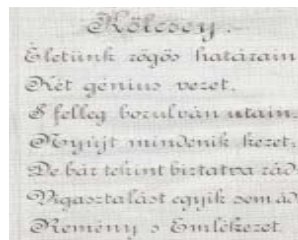 Kölcsey.
Életünk rögös határain
Két génius vezet.
S felleg borulván utain:
Nyujt mindenik kezet;
De bár tekint biztatva rád:
Vigasztalást egyik sem ád
Remény s Emlékezet.